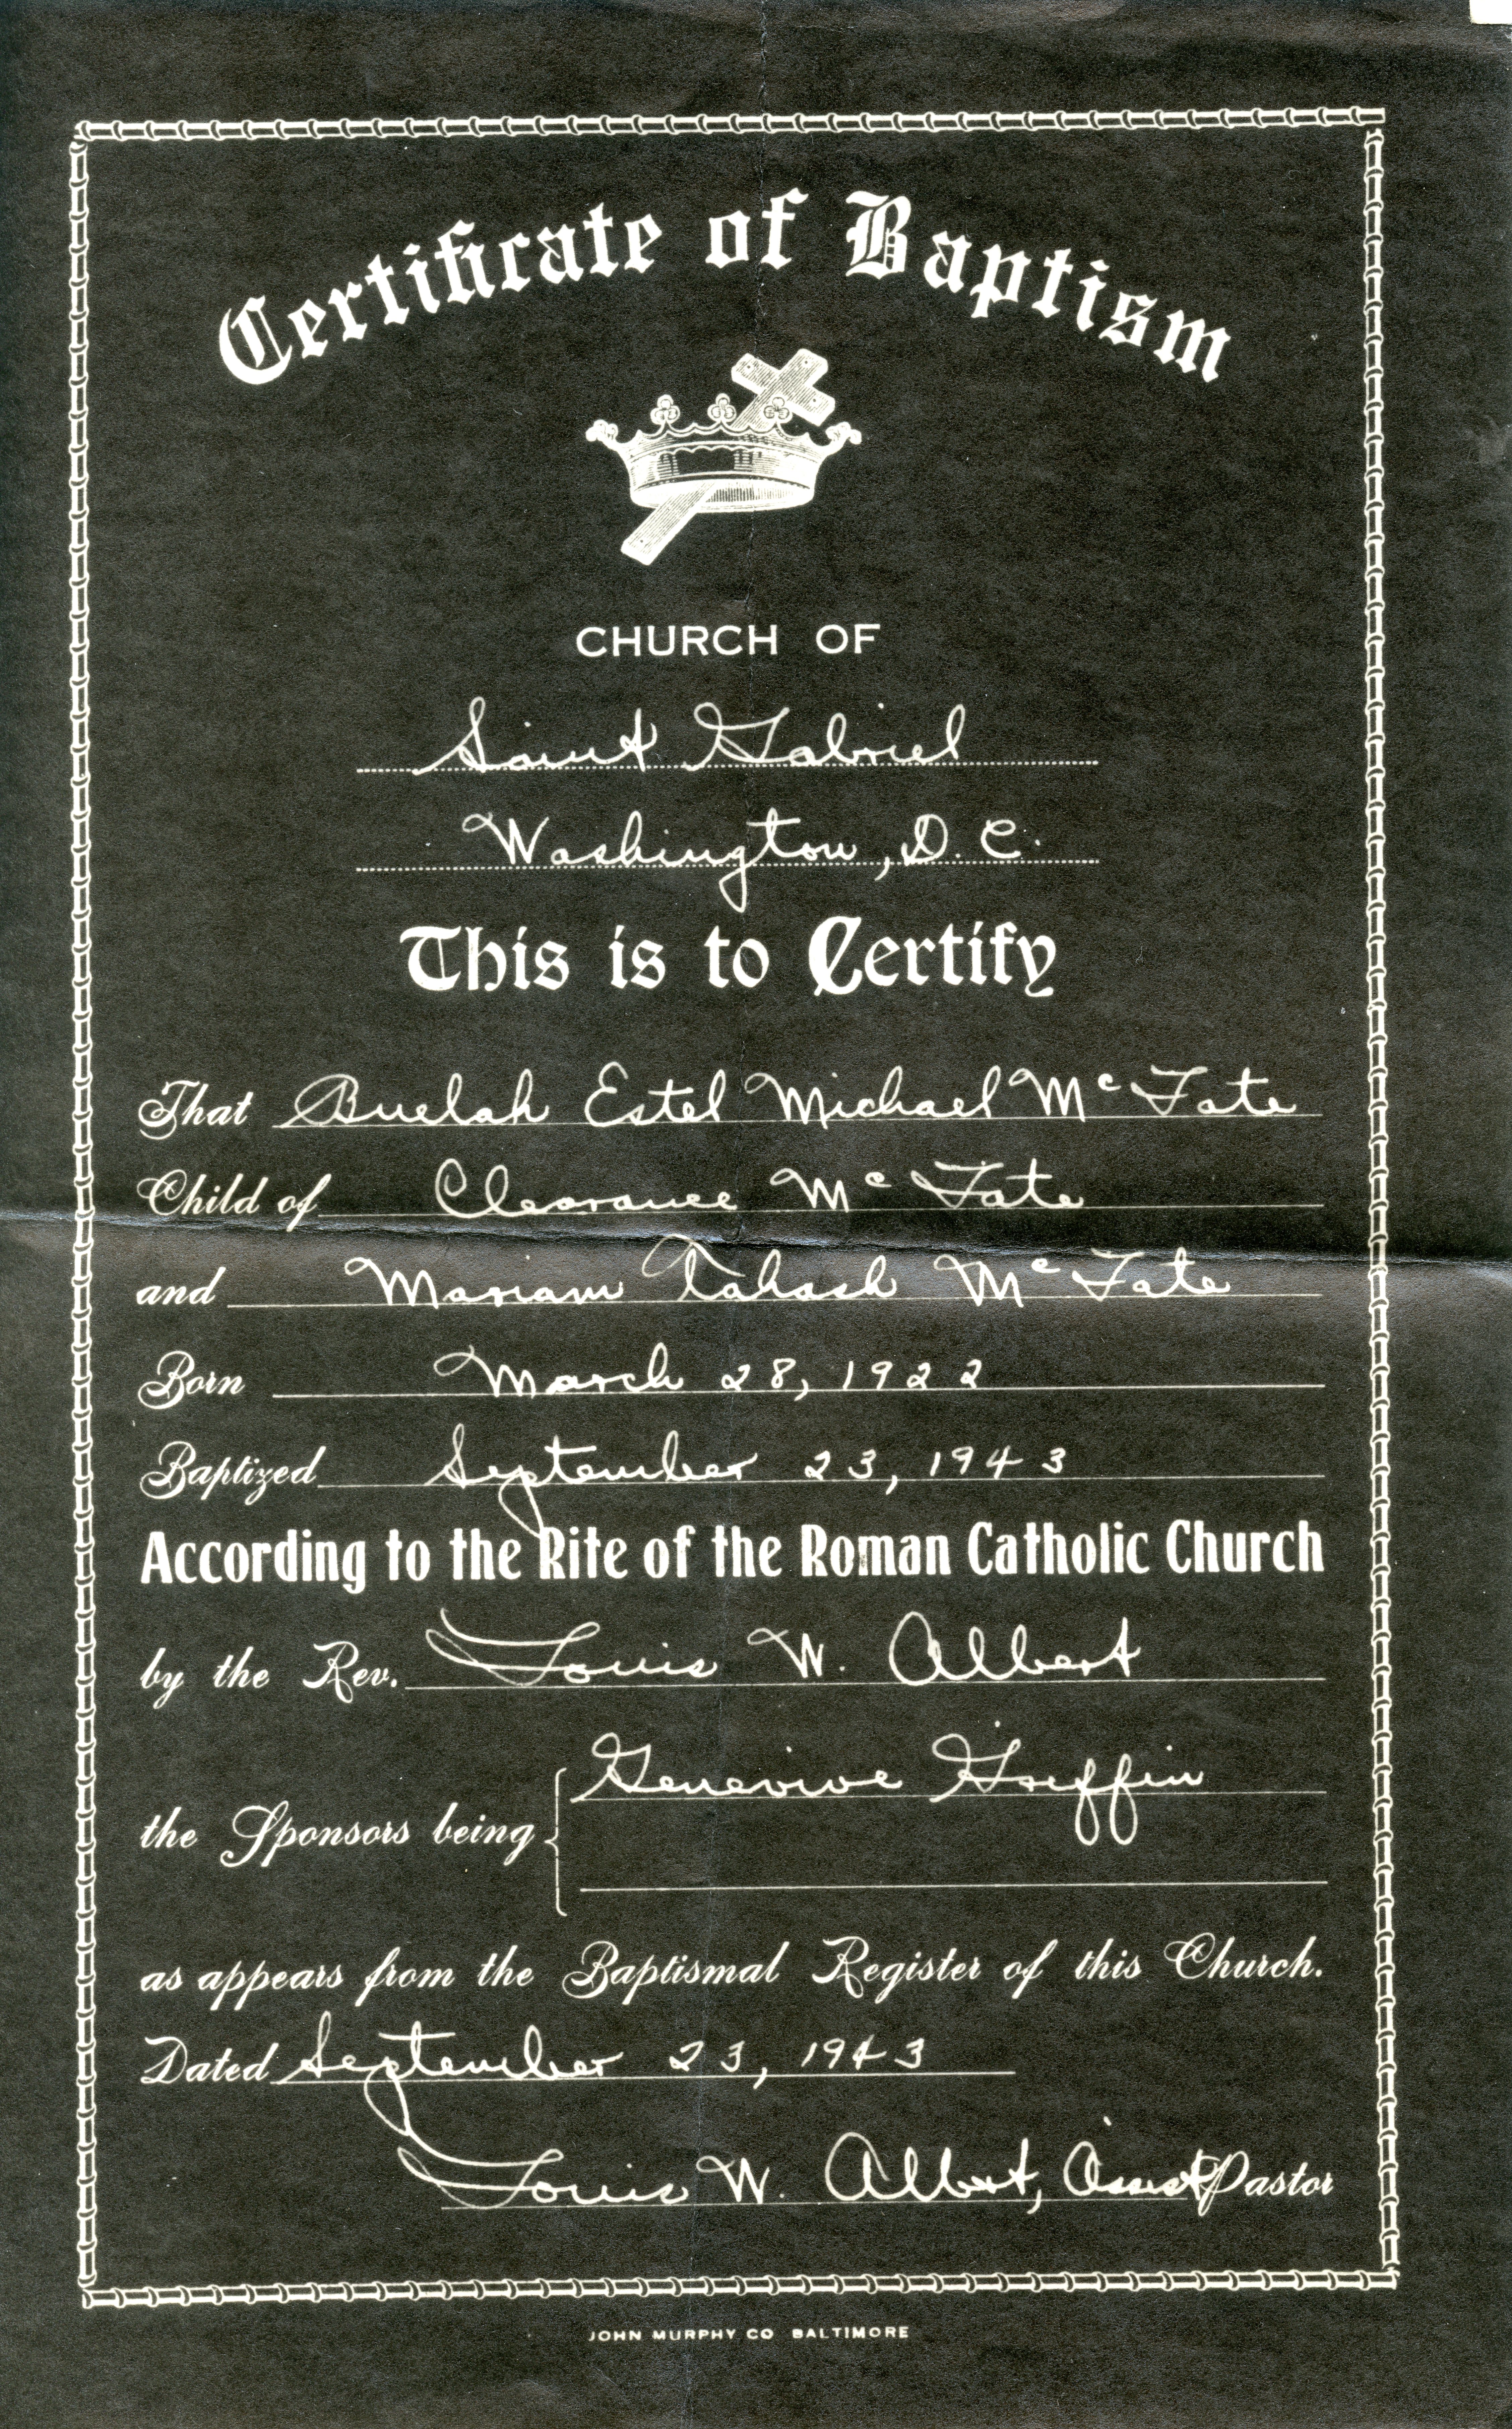 Certificate of Baptism
CHURCH OF
Saint Gabriel
Washington, D.C.
This is to Certify
That Buelah Estel Michael McFate
Child of Clearance McFate
and Mariam Tahash McFate
Born March 28, 1922
Baptized September 23, 1943
According to the Rite of the Roman Catholic Church
by the Rev. Louis W. Albert
the Sponsors being Genevive Griffin
as appears from the Baptismal Register of this Church.
Dated September 23, 1943
Louis W. Albert, Assist Pastor
JOHN MURPHY CO BALTIMORE